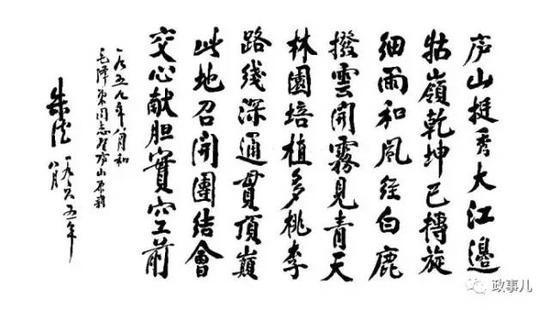 庐山挺秀大江邊
牯嶺乾坤已轉旋
細雨和風经白鹿
撥雲開霧見青天
林園培植多桃李
路线深通貫頂巔
此地召開團結會
交心献胆實空前
一九五九年八月和
毛泽東同志登庐山原韵
朱德 一九六五年
八月
政事儿